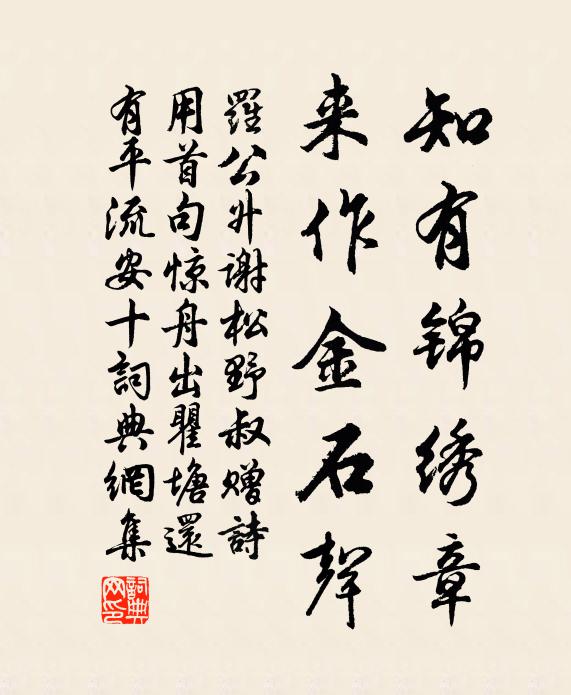 知有锦绣章
来作金石聲
羅公升谢松野叔赠詩
用首句惊舟出瞿塘還
有平流安十詞典網集
詞典网印